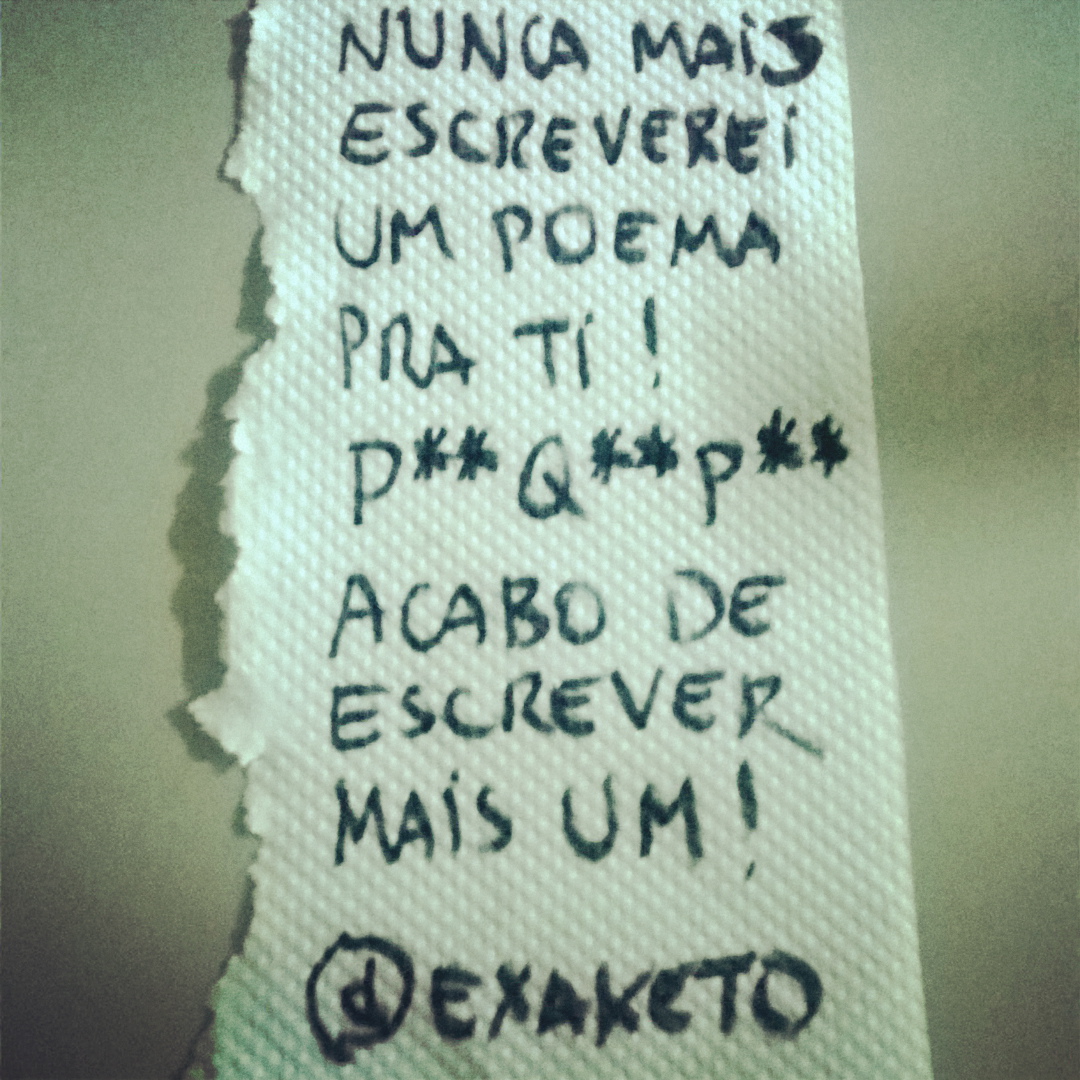 NUNCA MAIS
ESCREVEREI
UM POEMA
PRA TI!
P** Q** P**
ACABO DE
ESCREVER
MAIS UM!
@EXAKETO